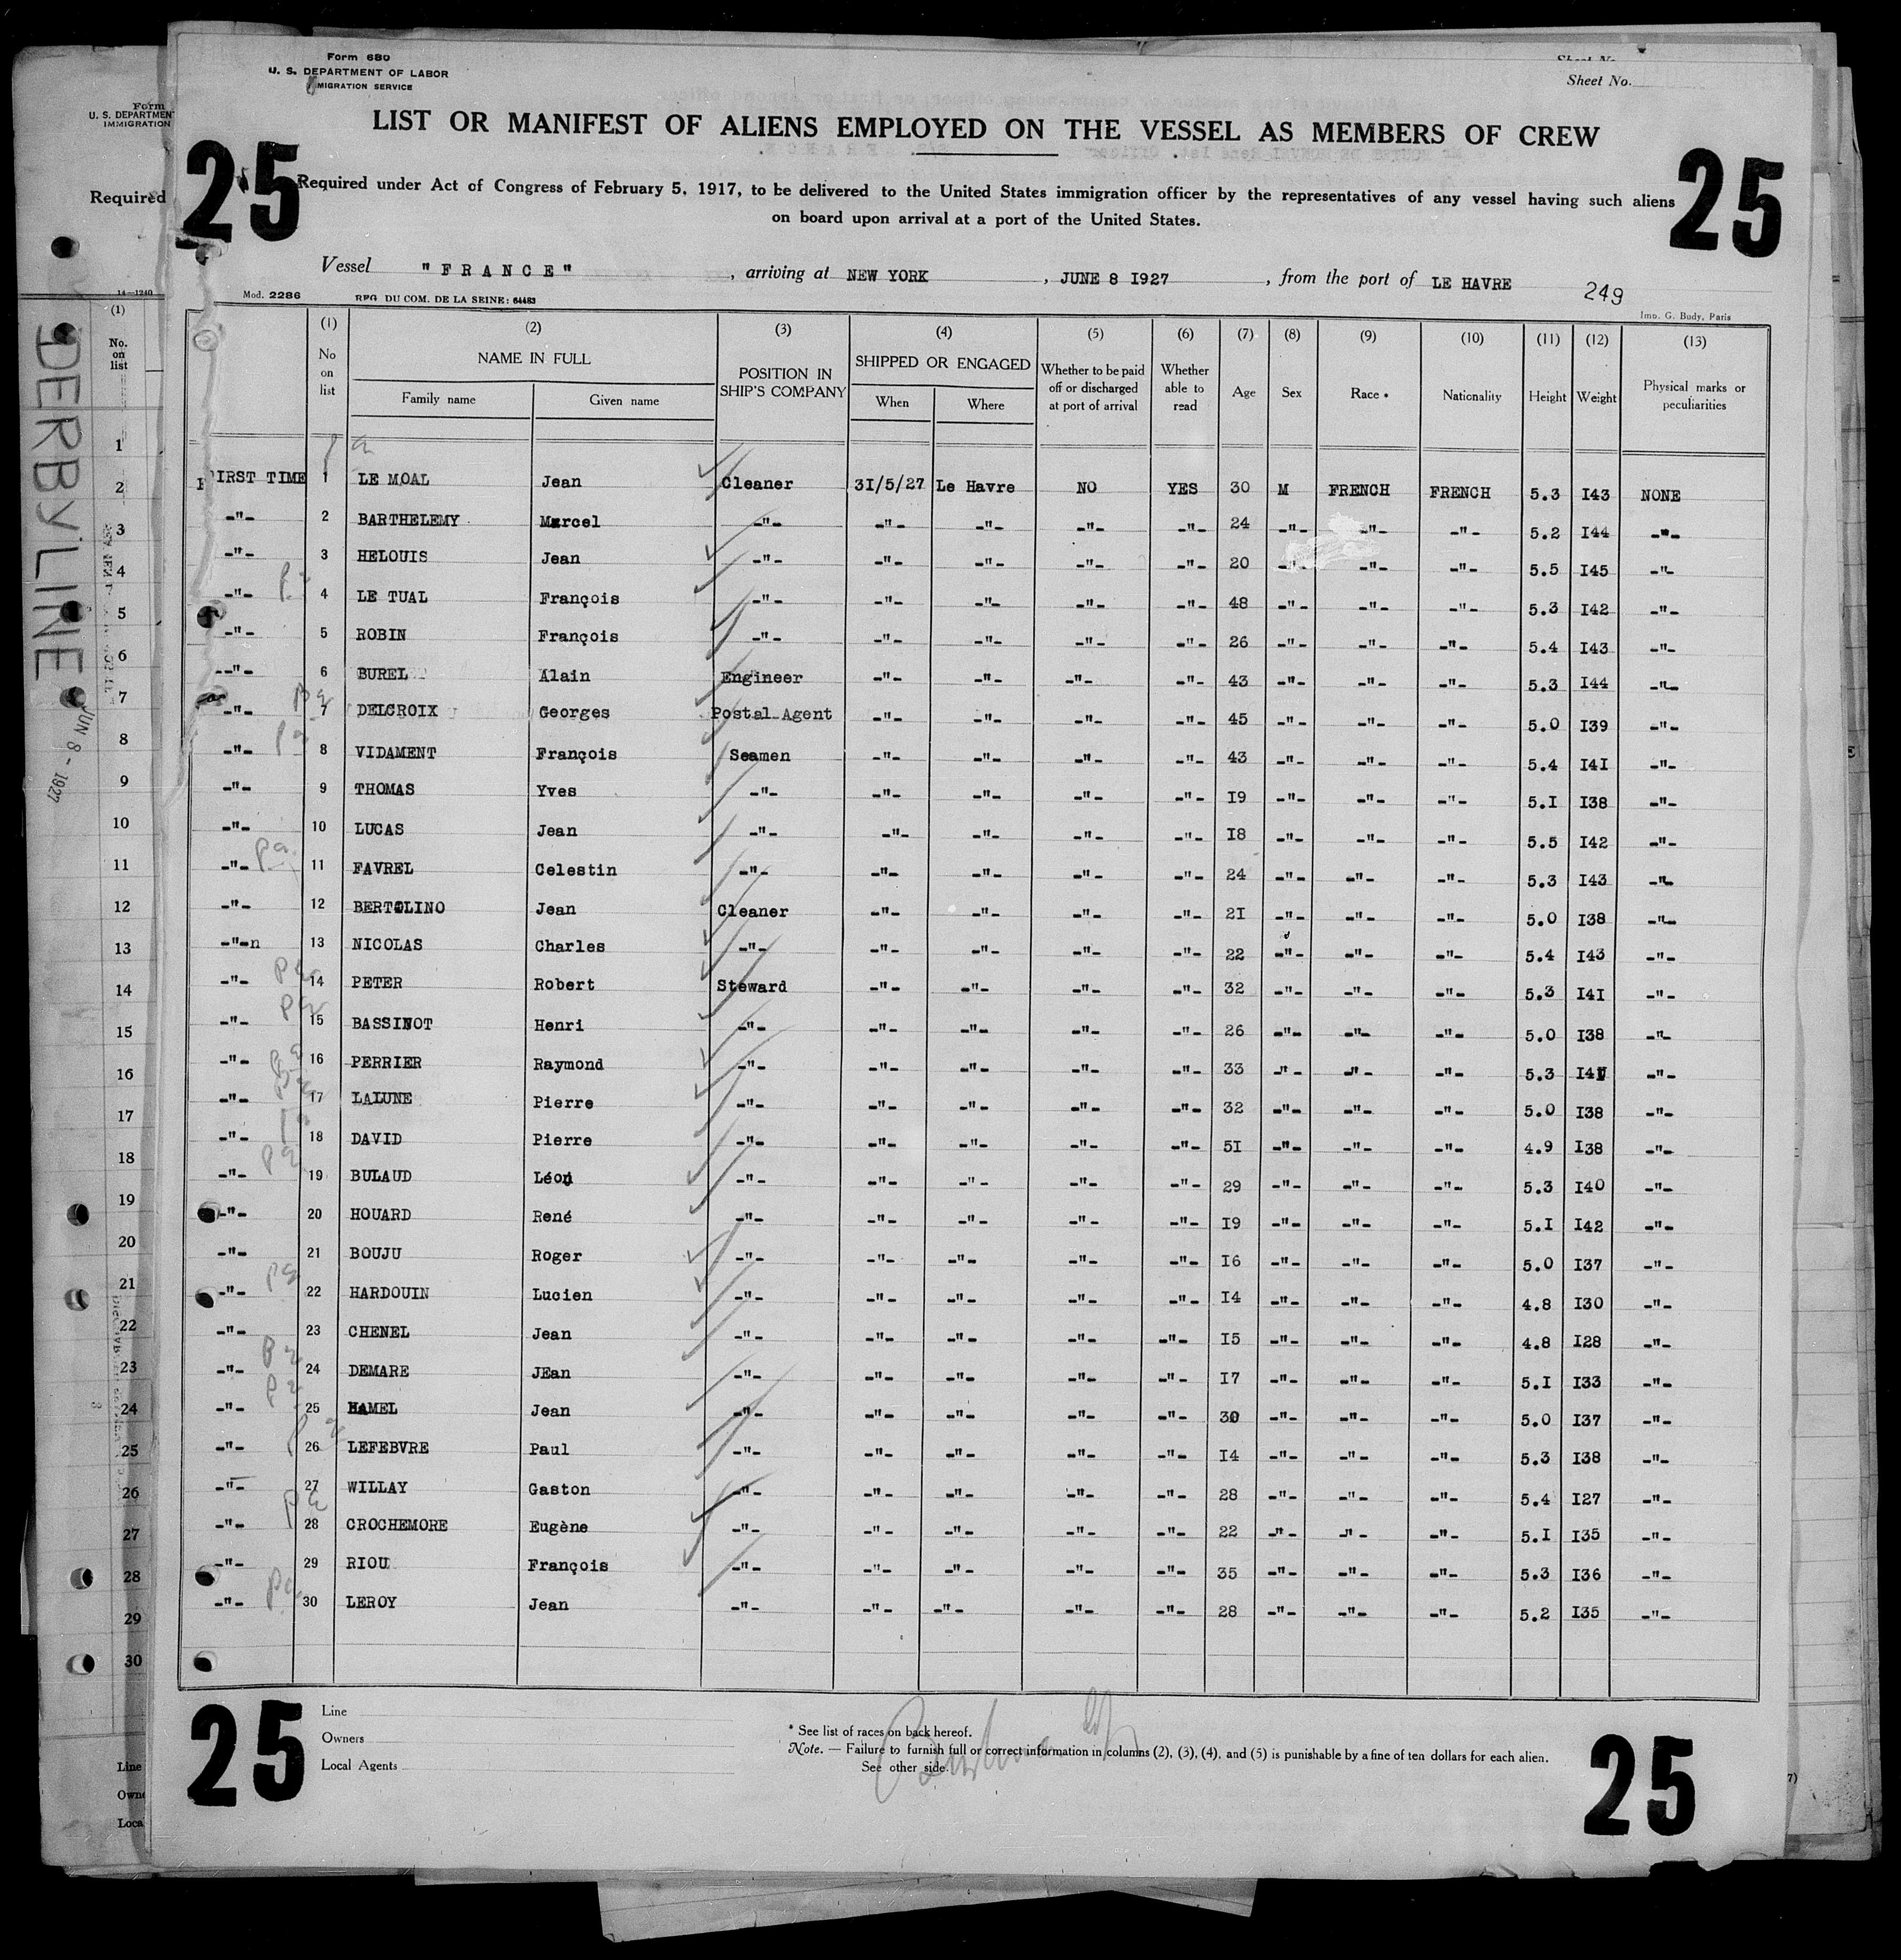 Form 680
U. S. DEPARTMENT OF LABOR
IMMIGRATION SERVICE
Sheet No.
Sheet No.
LIST OR MANIFEST OF ALIENS EMPLOYED ON THE VESSEL AS MEMBERS OF CREW
25 25
Required under Act of Congress of February 5, 1917, to be delivered to the United States immigration officer by the representatives of any vessel having such aliens
on board upon arrival at a port of the United States.
Vessel "FRANCE", arriving at NEW YORK, JUNE 8 I927, from the port of LE HAVRE 249
Mod. 2286 REG. DU COM. DE LA SEINE: 64483 Imp. G. Budy, Paris
(1) (2) (3) (4) (5) (6) (7) (8) (9) (10) (11) (12) (13)
No on list NAME IN FULL Family name Given name POSITION IN SHIP'S COMPANY SHIPPED OR ENGAGED When Where Whether to be paid off or discharged at port of arrival Whether able to read Age Sex Race * Nationality Height Weight Physical marks or peculiarities
FIRST TIME 1 LE MOAL Jean Cleaner 3I/5/27 Le Havre NO YES 30 M FRENCH FRENCH 5.3 I43 NONE
-"- 2 BARTHELEMY Marcel -"- -"- -"- -"- -"- 24 -"- -"- -"- 5.2 I44 -"-
-"- 3 HELOUIS Jean -"- -"- -"- -"- -"- 20 -"- -"- -"- 5.5 I45 -"-
-"- 4 LE TUAL François -"- -"- -"- -"- -"- 48 -"- -"- -"- 5.3 I42 -"-
-"- 5 ROBIN François -"- -"- -"- -"- -"- 26 -"- -"- -"- 5.4 I43 -"-
--"- 6 BUREL Alain Engineer -"- -"- -"- -"- 43 -"- -"- -"- 5.3 I44 -"-
-"- 7 DELCROIX Georges Postal Agent -"- -"- -"- -"- 45 -"- -"- -"- 5.0 I39 -"-
-"- 8 VIDAMENT François Seamen -"- -"- -"- -"- 43 -"- -"- -"- 5.4 I4I -"-
-"- 9 THOMAS Yves -"- -"- -"- -"- -"- I9 -"- -"- -"- 5.I I38 -"-
-"- 10 LUCAS Jean -"- -"- -"- -"- -"- I8 -"- -"- -"- 5.5 I42 -"-
-"- 11 FAVREL Celestin -"- -"- -"- -"- -"- 24 -"- -"- -"- 5.3 I43 -"-
-"- 12 BERTOLINO Jean Cleaner -"- -"- -"- -"- 2I -"- -"- -"- 5.0 I38 -"-
-"-n 13 NICOLAS Charles -"- -"- -"- -"- -"- 22 -"- -"- -"- 5.4 I43 -"-
-"- 14 PETER Robert Steward -"- -"- -"- -"- 32 -"- -"- -"- 5.3 I4I -"-
-"- 15 BASSINOT Henri -"- -"- -"- -"- -"- 26 -"- -"- -"- 5.0 I38 -"-
-"- 16 PERRIER Raymond -"- -"- -"- -"- -"- 33 -"- -"- -"- 5.3 -"-
-"- 17 LALUNE Pierre -"- -"- -"- -"- -"- 32 -"- -"- -"- 5.0 I38 -"-
-"- 18 DAVID Pierre -"- -"- -"- -"- -"- 5I -"- -"- -"- 4.9 I38 -"-
-"- 19 BULAUD Léon -"- -"- -"- -"- -"- 29 -"- -"- -"- 5.3 I40 -"-
-"- 20 HOUARD René -"- -"- -"- -"- -"- I9 -"- -"- -"- 5.I I42 -"-
-"- 21 BOUJU Roger -"- -"- -"- -"- -"- I6 -"- -"- -"- 5.0 I37 -"-
-"- 22 HARDOUIN Lucien -"- -"- -"- -"- -"- I4 -"- -"- -"- 4.8 I30 -"-
-"- 23 CHENEL Jean -"- -"- -"- -"- -"- I5 -"- -"- -"- 4.8 I28 -"-
-"- 24 DEMARE JEan -"- -"- -"- -"- -"- I7 -"- -"- -"- 5.I I33 -"-
-"- 25 HAMEL Jean -"- -"- -"- -"- -"- 30 -"- -"- -"- 5.0 I37 -"-
-"- 26 LEFEBVRE Paul -"- -"- -"- -"- -"- I4 -"- -"- -"- 5.3 I38 -"-
-"- 27 WILLAY Gaston -"- -"- -"- -"- -"- 28 -"- -"- -"- 5.4 I27 -"-
-"- 28 CROCHEMORE Eugène -"- -"- -"- -"- -"- 22 -"- -"- -"- 5.I I35 -"-
-"- 29 RIOU François -"- -"- -"- -"- -"- 35 -"- -"- -"- 5.3 I36 -"-
-"- 30 LEROY Jean -"- -"- -"- -"- -"- 28 -"- -"- -"- 5.2 I35 -"-
25 25
Line
Owners
Local Agents
* See list of races on back hereof.
Note. — Failure to furnish full or correct information in columns (2), (3), (4), and (5) is punishable by a fine of ten dollars for each alien.
See other side.
Form
U. S. DEPARTMENT
IMMIGRATION
Required
14—1240
(1)
No.
on
list
DERBY LINE
JUN 8 - 1927
1
2
3
4
5
6
7
8
9
10
11
12
13
14
15
16
17
18
19
20
21
22
23
24
25
26
27
28
29
30
Line
Owne
Loca